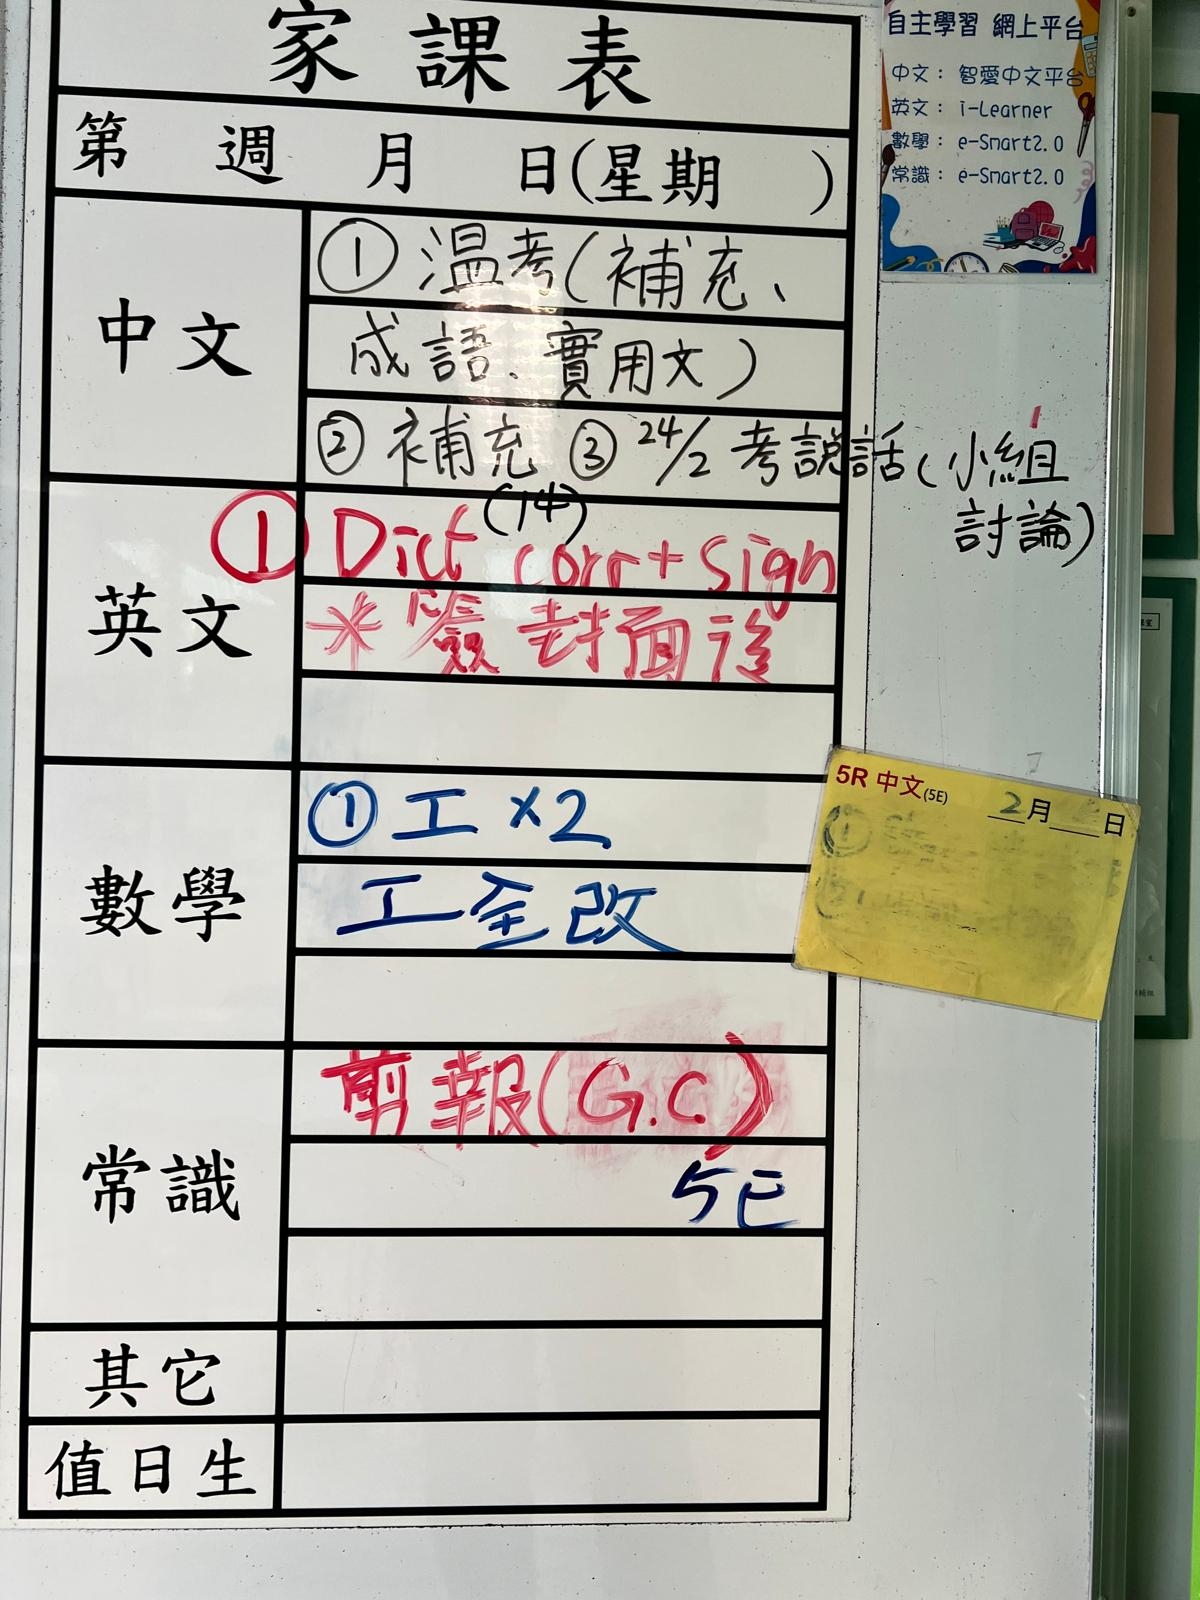 家課表
第 週 月 日(星期 )
中文
① 溫考(補充、
成語、實用文)
② 補充 ③ 24/2 考說話(小組
討論)
英文
① Dict (14) corr + sign
* 簽封面後
數學
① 工 x2
工全改
常識
剪報(G.C.)
5E
其它
值日生
自主學習 網上平台
中文： 智愛中文平台
英文： i-Learner
數學： e-Smart2.0
常識： e-Smart2.0
5R 中文(5E) 2月 日
①